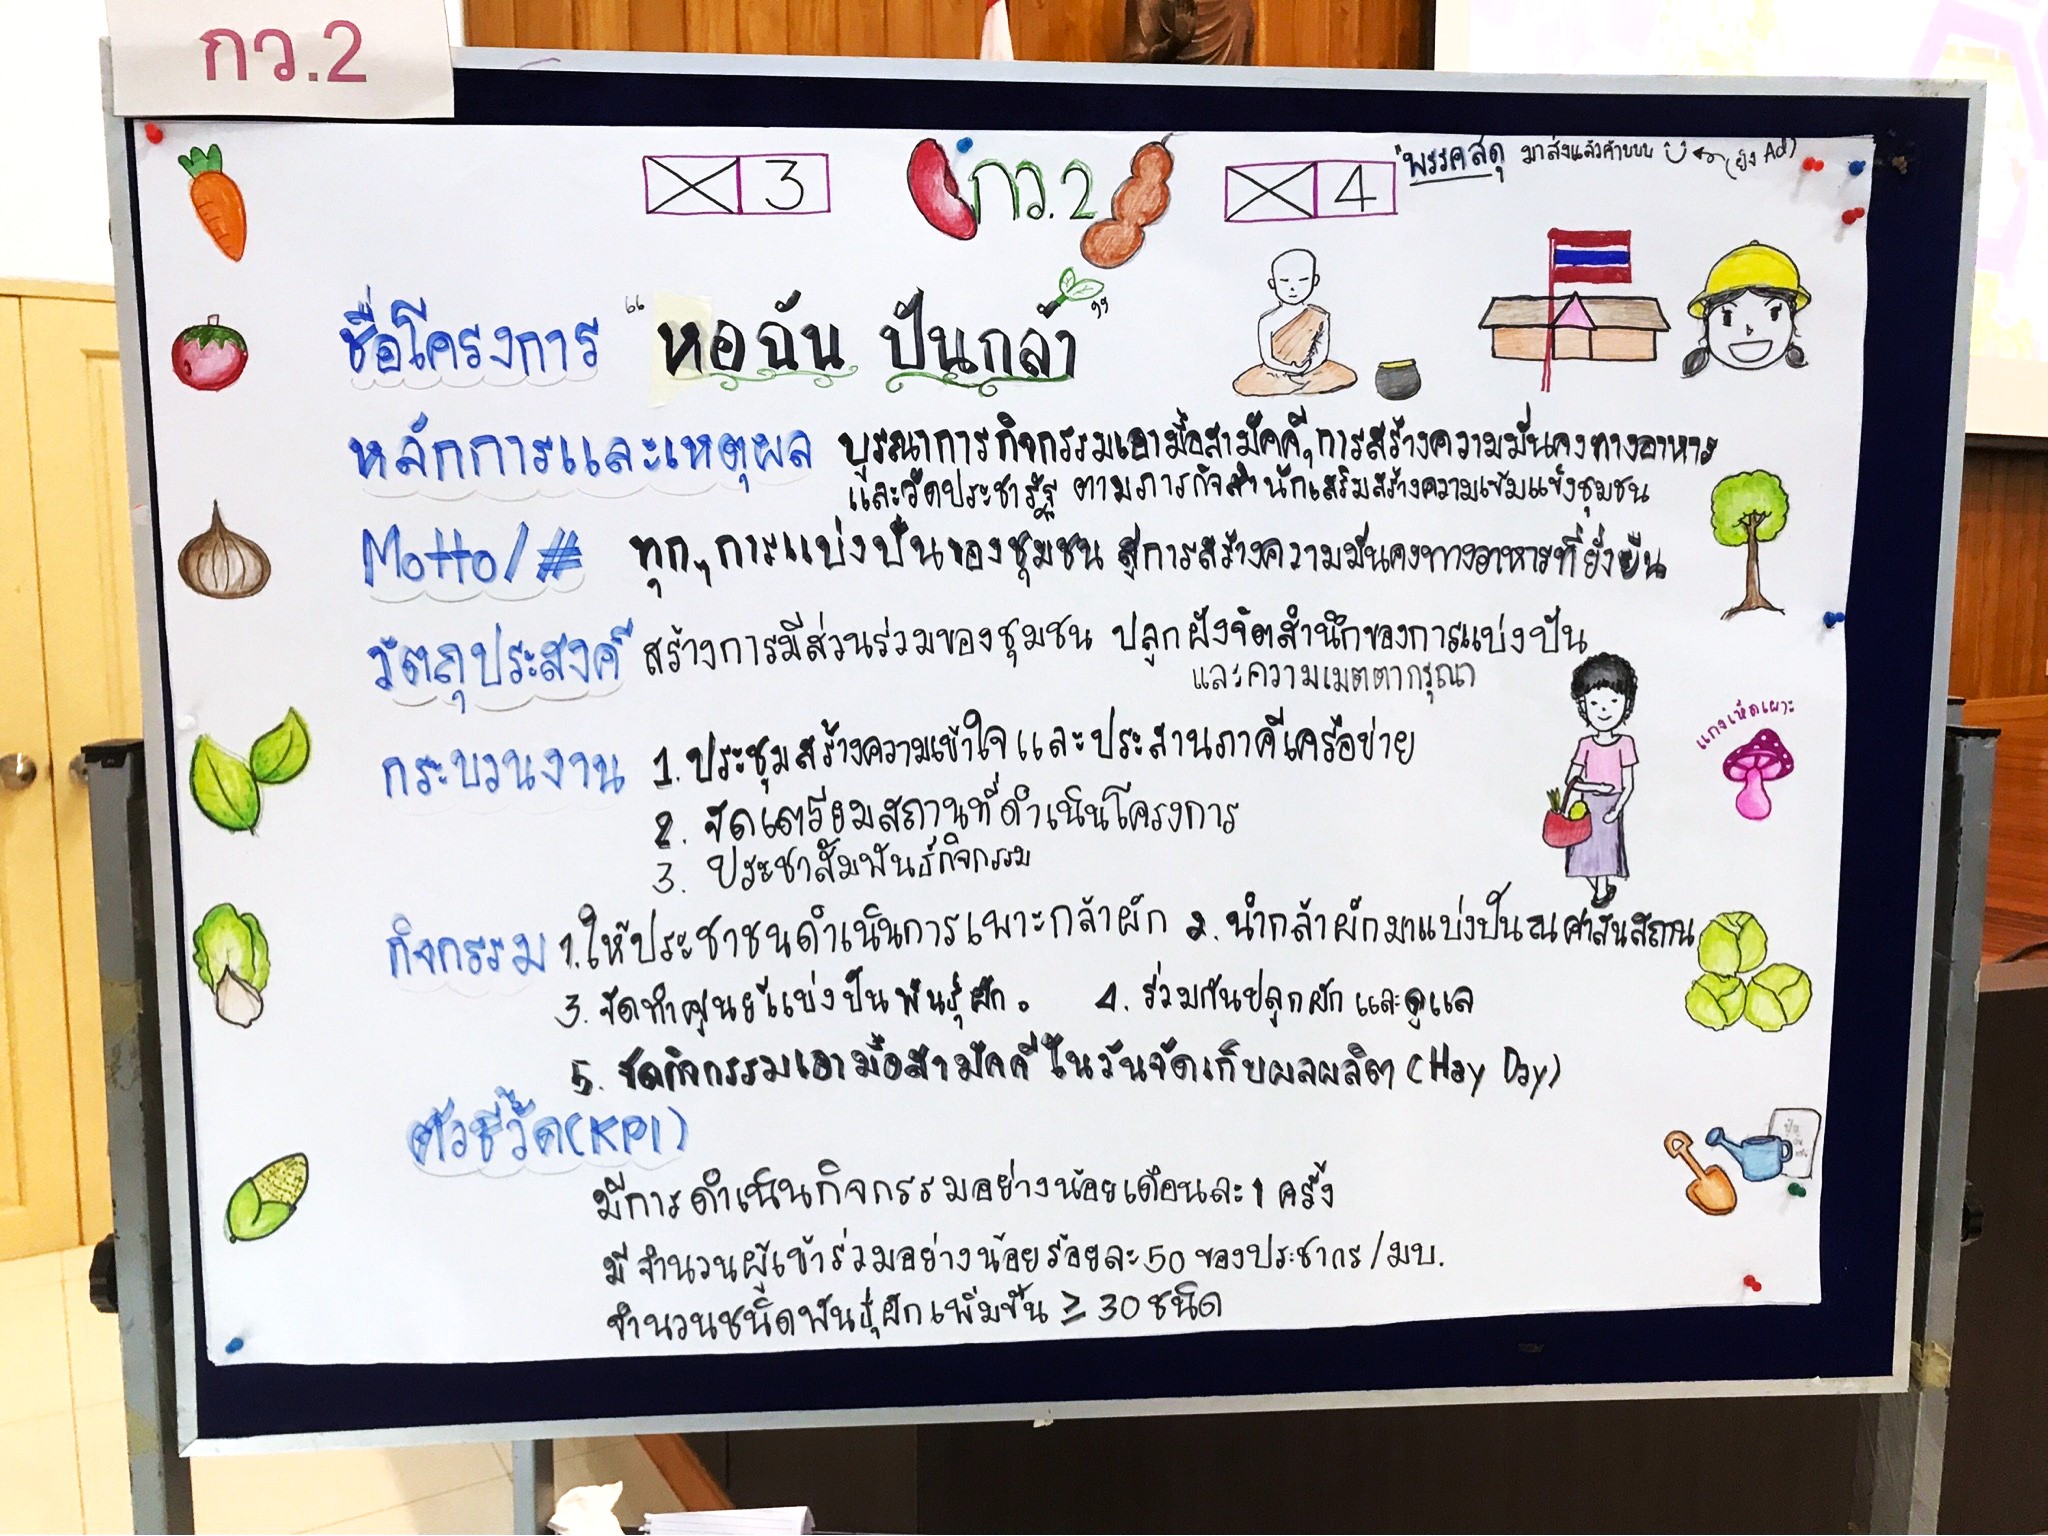 กว.2
3
กว.2
4
"พรรคสดุ มาส่งแล้วค้าบบบ (ยัง Ad)
ชื่อโครงการ "หอฉัน ปันกล้า"
หลักการและเหตุผล บูรณาการกิจกรรมเอามื้อสามัคคี, การสร้างความมั่นคงทางอาหาร
และวัดประชารัฐ ตามภารกิจสำนักเสริมสร้างความเข้มแข็งชุมชน
Motto/# ทุกๆการแบ่งปันของชุมชน สู่การสร้างความมั่นคงทางอาหารที่ยั่งยืน
วัตถุประสงค์ สร้างการมีส่วนร่วมของชุมชน ปลูกฝังจิตสำนึกของการแบ่งปัน
และความเมตตากรุณา
กระบวนงาน 1. ประชุมสร้างความเข้าใจและประสานภาคีเครือข่าย
แกงเห็ดเผาะ
2. จัดเตรียมสถานที่ดำเนินโครงการ
3. ประชาสัมพันธ์กิจกรรม
กิจกรรม 1. ให้ประชาชนดำเนินการเพาะกล้าผัก 2. นำกล้าผักมาแบ่งปัน ณ ศาสนสถาน
3. จัดทำศูนย์แบ่งปันพันธุ์ผัก. 4. ร่วมกันปลูกผักและดูแล
5. จัดกิจกรรมเอามื้อสามัคคีในวันจัดเก็บผลผลิต (Hay Day)
ตัวชี้วัด(KPI)
มีการดำเนินกิจกรรมอย่างน้อยเดือนละ 1 ครั้ง
มีจำนวนผู้เข้าร่วมอย่างน้อยร้อยละ 50 ของประชากร/มบ.
จำนวนชนิดพันธุ์ผักเพิ่มขึ้น ≥ 30 ชนิด